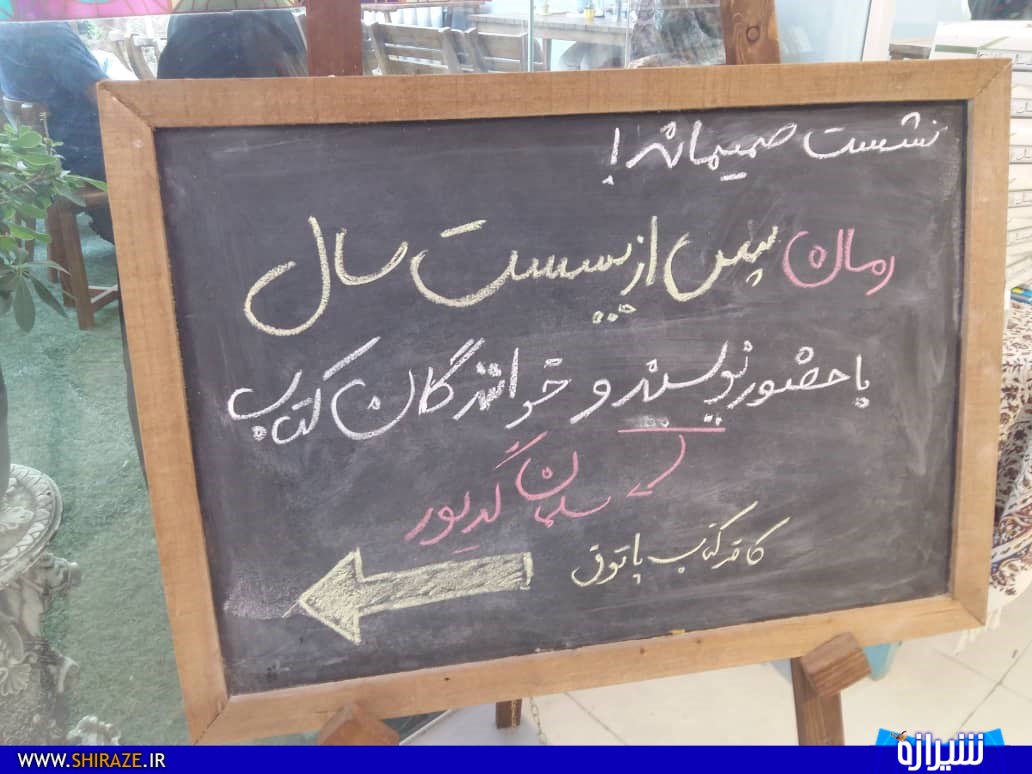 نشست صمیمانه!
رمان پس از بیست سال
با حضور نویسنده و خوانندگان کتاب
سلمان کدیور
کافه کتاب پاتوق
WWW.SHIRAZE.IR
شیرازه